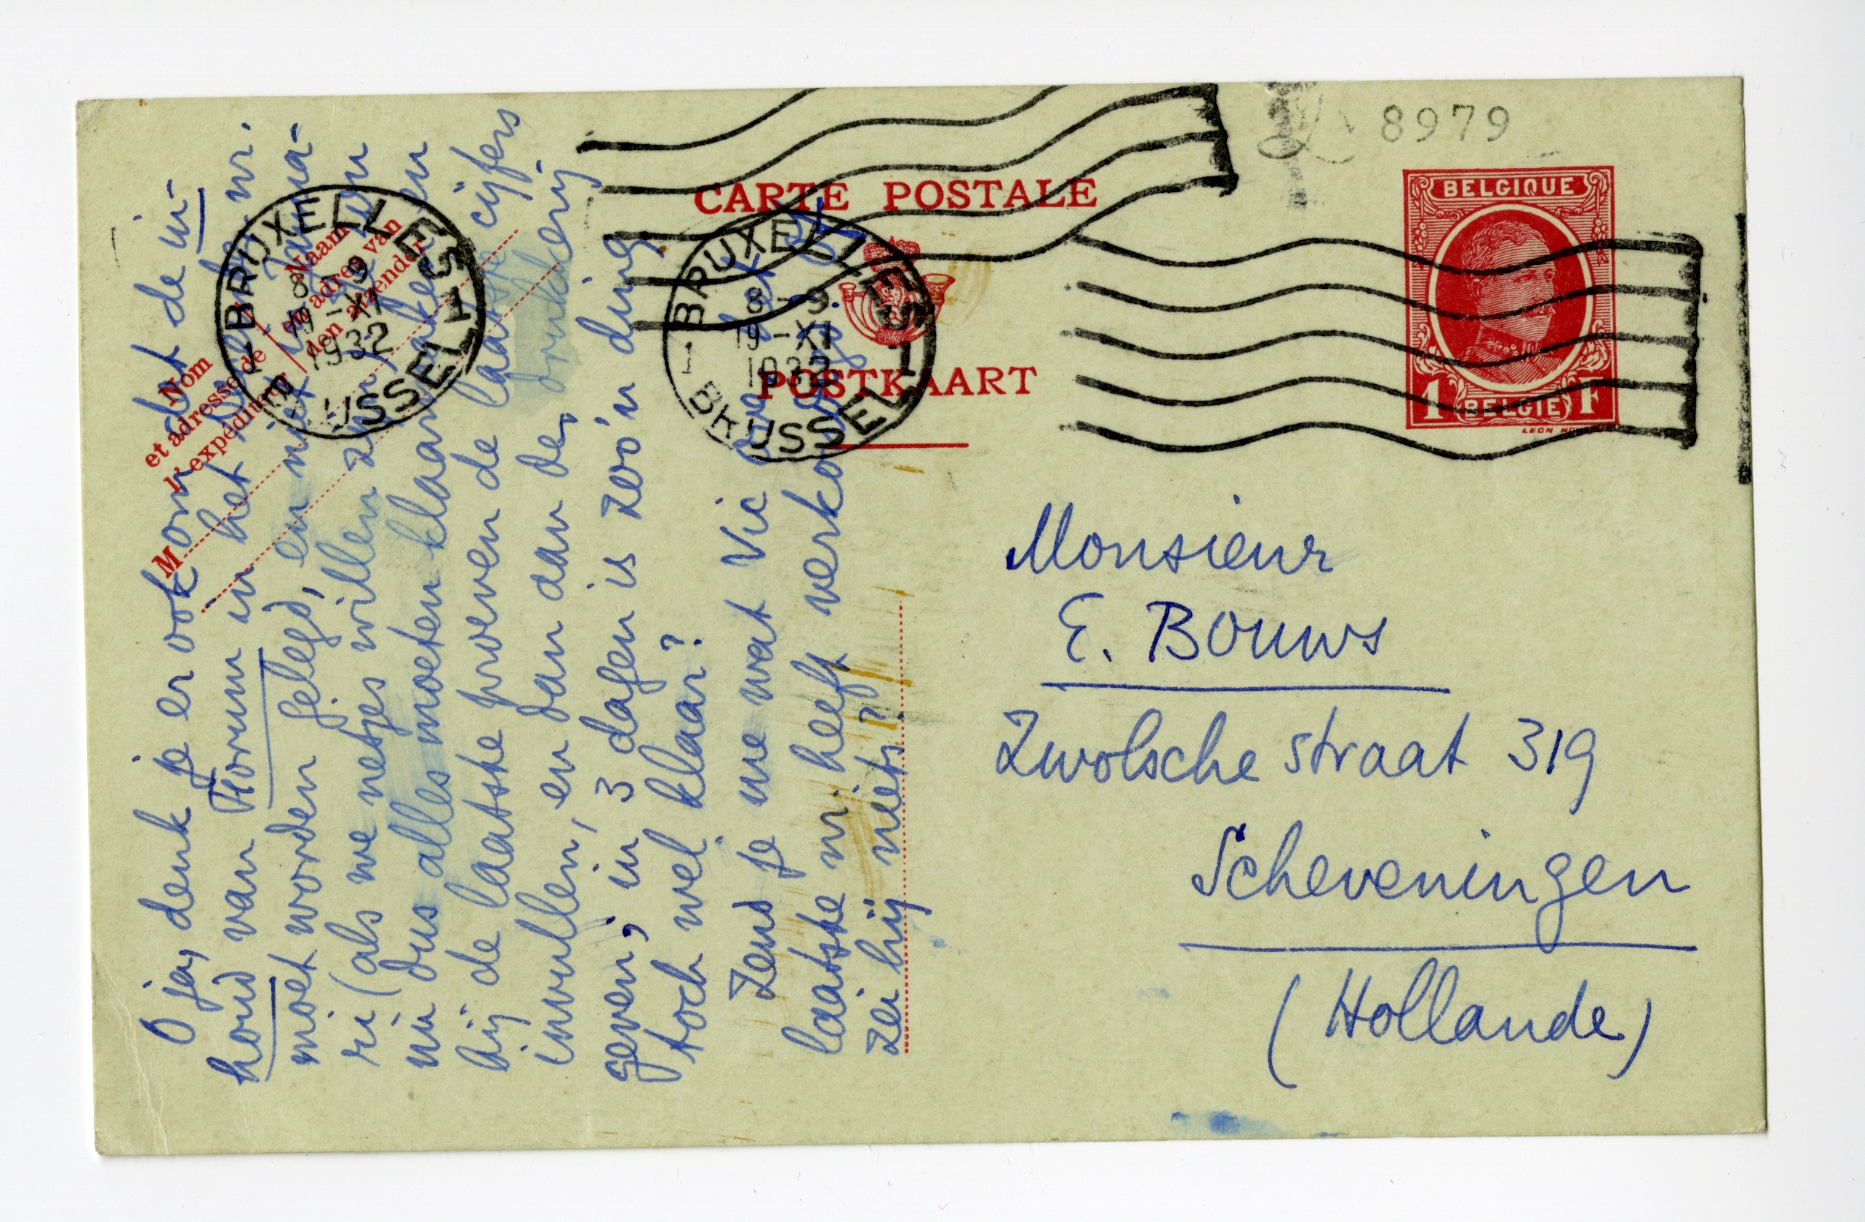 8979
CARTE POSTALE
POSTKAART
BELGIQUE
1 BELGIË F
BRUXELLES 1
8-9
19-XI
1932
BRUSSEL
1 BRUXELLES 1
8-9
19-XI
1932
BRUSSEL
Nom
et adresse de
l'expéditeur
Naam
en adres van
den afzender
M
Monsieur
E. Bouws
Zwolsche straat 319
Scheveningen
(Hollande)
O ja, denk je er ook om dat de in-
houd van Forum in het
moet worden gelegd, en niet in Janua-
ri (als we netjes willen zijn)? Jan
nu dus alles moeten klaarmaken en
bij de laatste proeven de laatste cijfers
invullen, en dan aan de drukkerij
geven; in 3 dagen is zoo'n ding
toch wel klaar?
Zend je me wat Vic
laatste nr. heeft verkort
zei hij niets?